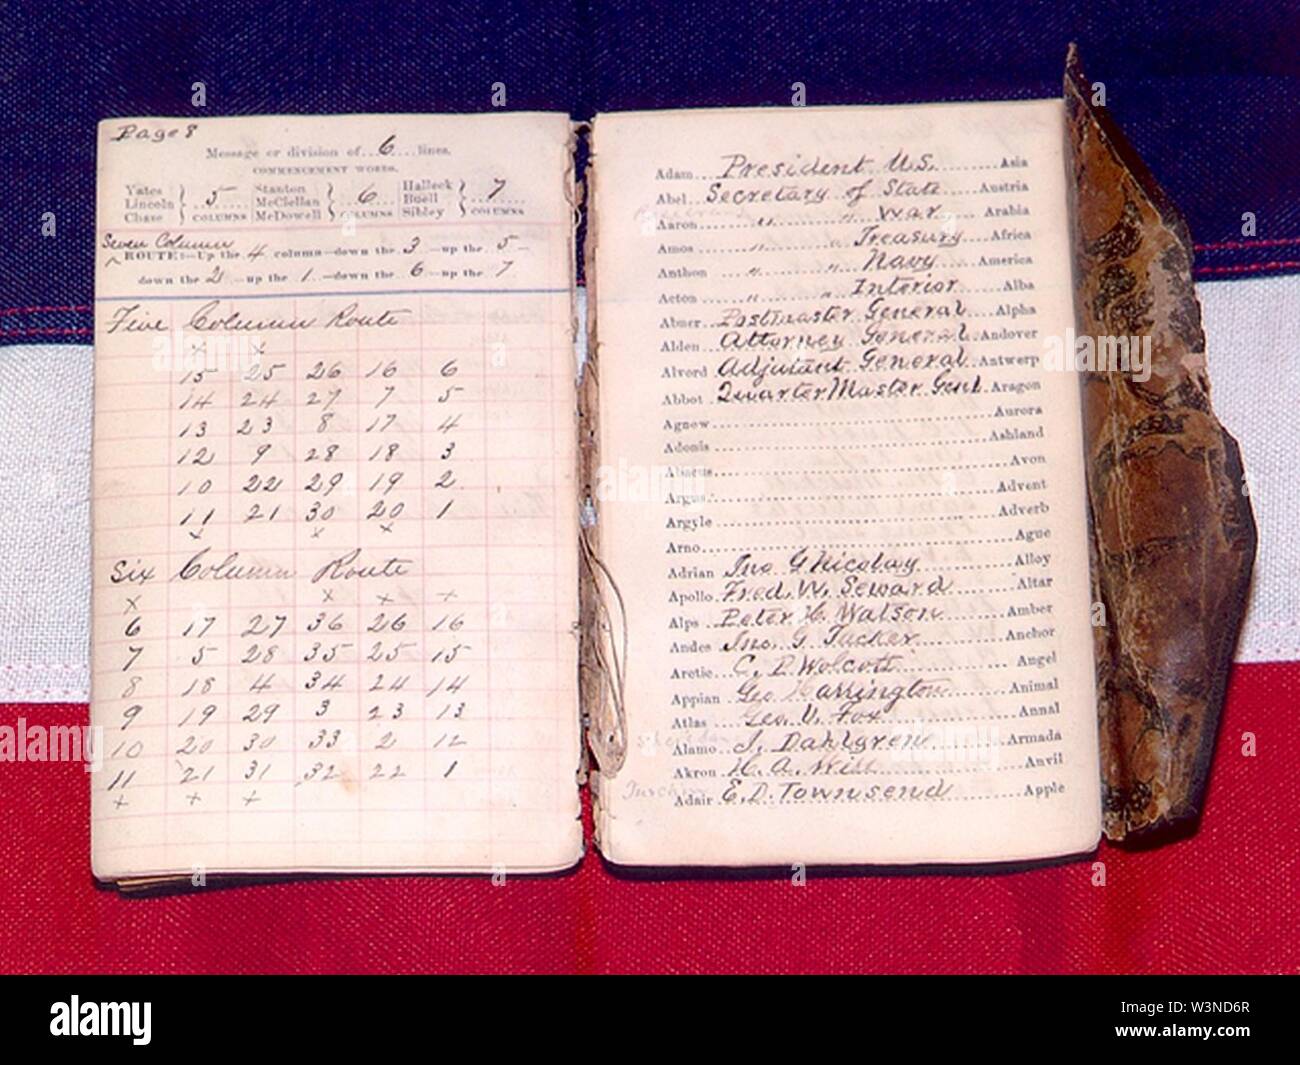 Page 8
Message or division of 6 lines.
COMMENCEMENT WORDS.
Yates Lincoln Chase } 5 COLUMNS
Stanton McClellan McDowell } 6 COLUMNS
Halleck Buell Sibley } 7 COLUMNS
Seven Column
ROUTE:—Up the 4 column—down the 3—up the 5—
down the 2—up the 1—down the 6—up the 7
Five Column Route
x x
15 25 26 16 6
14 24 27 7 5
13 23 8 17 4
12 9 28 18 3
10 22 29 19 2
11 21 30 20 1
x x x
Six Column Route
x x x x
6 17 27 36 26 16
7 5 28 35 25 15
8 18 4 34 24 14
9 19 29 3 23 13
10 20 30 33 2 12
11 21 31 32 22 1
x x x
Adam President U.S. Asia
Abel Secretary of State Austria
Aaron " " War Arabia
Amos " " Treasury Africa
Anthon " " Navy America
Acton " " Interior Alba
Abner Postmaster General Alpha
Alden Attorney General Andover
Alvord Adjutant General Antwerp
Abbot Quarter Master Genl Aragon
Agnew Aurora
Adonis Ashland
Abacus Avon
Argus Advent
Argyle Adverb
Arno Ague
Adrian Jno G Nicolay Alloy
Apollo Fred. W. Seward Altar
Alps Peter H. Watson Amber
Andes Jno. G. Tucker Anchor
Arctic C. P. Wolcott Angel
Appian Geo Harrington Animal
Atlas Geo. V. Fox Annal
Alamo J. Dahlgren Armada
Akron H. A. Wise Anvil
Adair E. D. Townsend Apple
a alamy stock photo
alamy
Image ID: W3ND6R
www.alamy.com